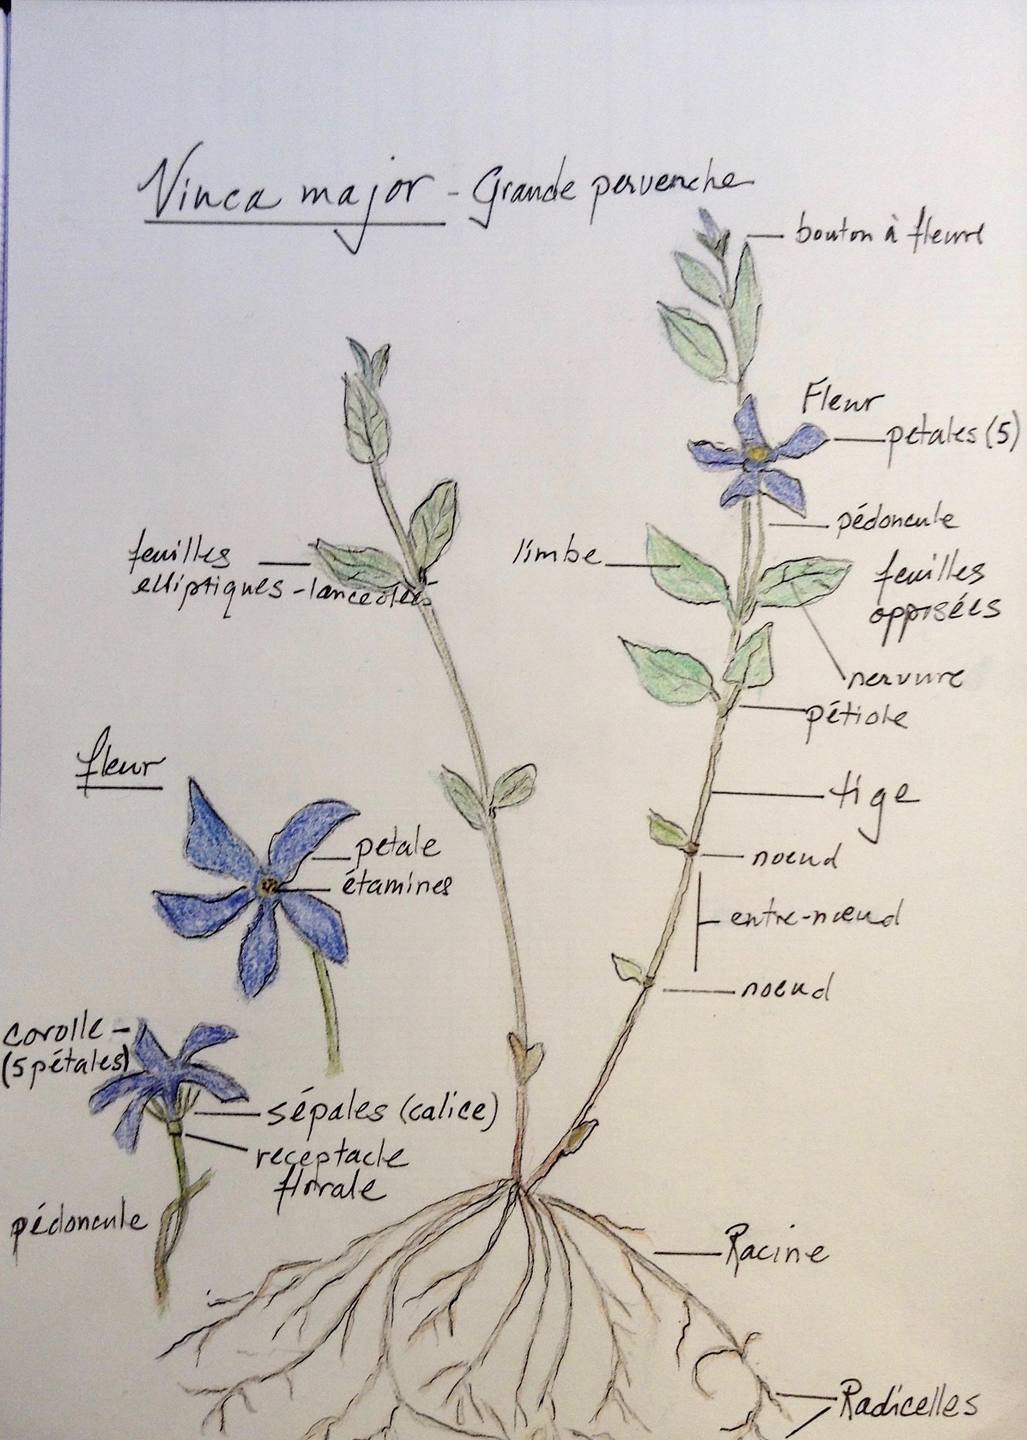 Vinca major - Grande pervenche
bouton à fleurs
Fleur
petales (5)
pédoncule
feuilles
elliptiques - lanceolées
limbe
feuilles
opposées
nervure
pétiole
fleur
tige
petale
étamines
noeud
entre-nœud
noeud
corolle -
(5 pétales)
sépales (calice)
receptacle
florale
pédoncule
Racine
Radicelles